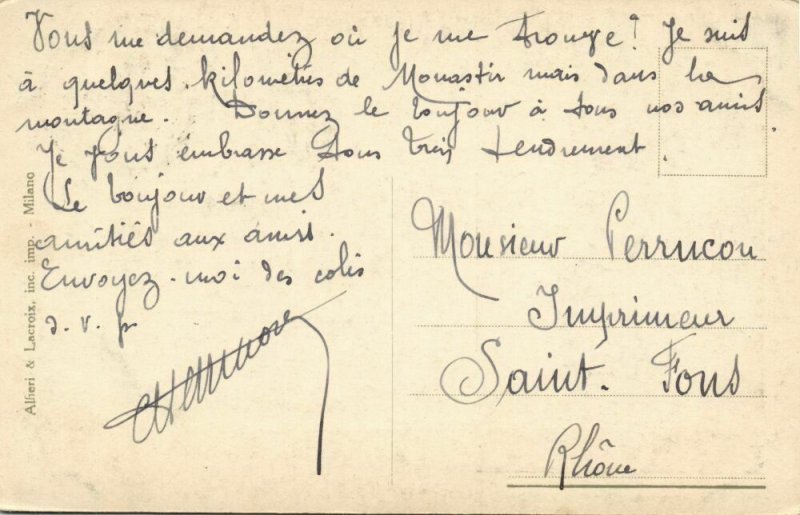 Vous me demandez où je me trouve? Je suis
à quelques kilomètres de Monastir mais dans la
montagne. Donnez le bonjour à tous nos amis
Je vous embrasse tous très tendrement.
Le bonjour et mes
amitiés aux amis.
Envoyez-moi des colis
s. v. p
Monsieur Perrucon
Imprimeur
Saint. Fons
Rhône
Alfieri & Lacroix, inc. imp. - Milano